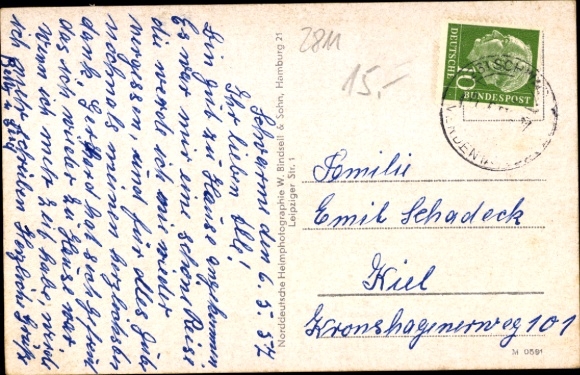 2811
15.-
DEUTSCHE
BUNDESPOST
10
Familie
Emil Schadeck
Kiel
Kronshagenerweg 101
M 0591
Norddeutsche Heimphotographie W. Bindseil & Sohn, Hamburg 21
Leipziger Str. 1
den 6. 5. 57
Ihr lieben Alle!
Bin gut zu Hause angekommen
Es war eine schöne Reise
die werde ich nie wieder
vergessen, und für alles Gute
nochmals meinen herzlichsten
Dank, Gerhard hat sich gefreut
das ich wieder zu Hause war
wenn ich mehr Zeit habe werde
ich mehr schreiben Herzliche Grüße